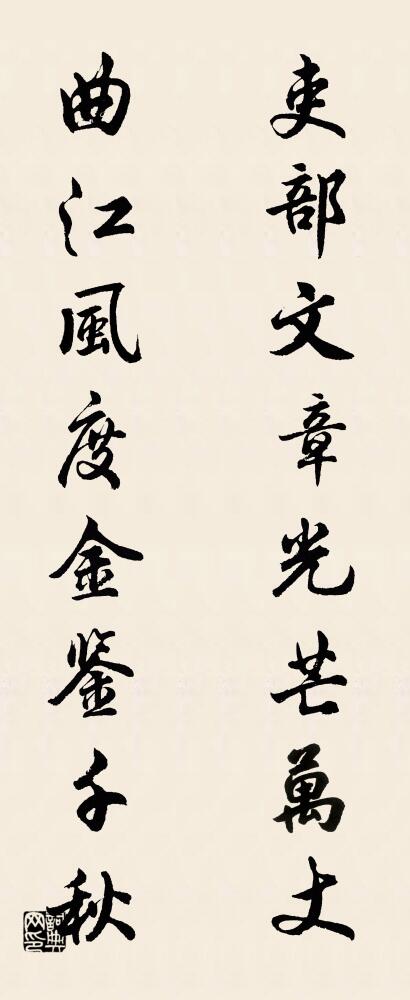 吏部文章光芒萬丈
曲江風度金鑒千秋